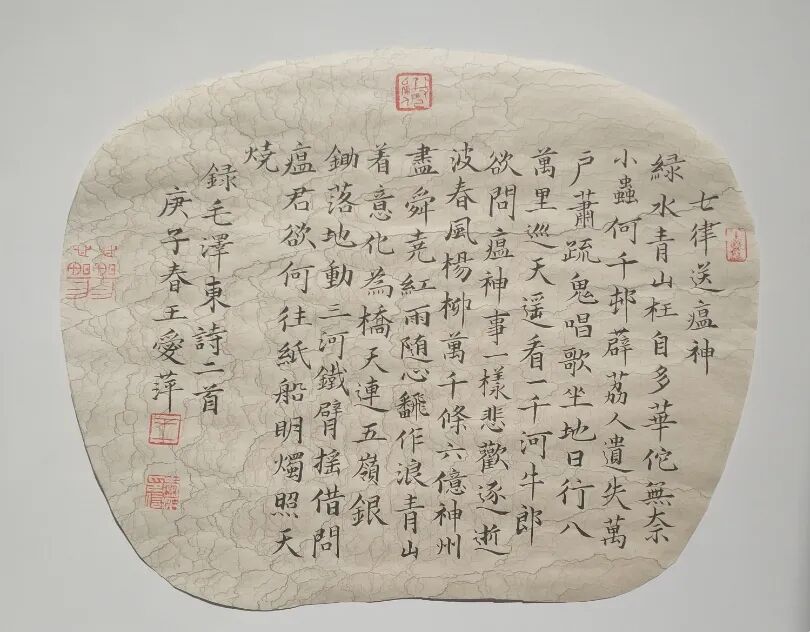 七律送瘟神
緑水青山枉自多華佗無奈
小蟲何千邨薜荔人遺失萬
户蕭疏鬼唱歌坐地日行八
萬里巡天遥看一千河牛郎
欲問瘟神事一樣悲歡逐逝
波春風楊柳萬千條六億神州
盡舜堯紅雨随心飜作浪青山
着意化為橋天連五嶺銀
鋤落地動三河鐵臂摇借問
瘟君欲何往紙船明燭照天
燒
録毛澤東詩二首
庚子春王愛萍
王